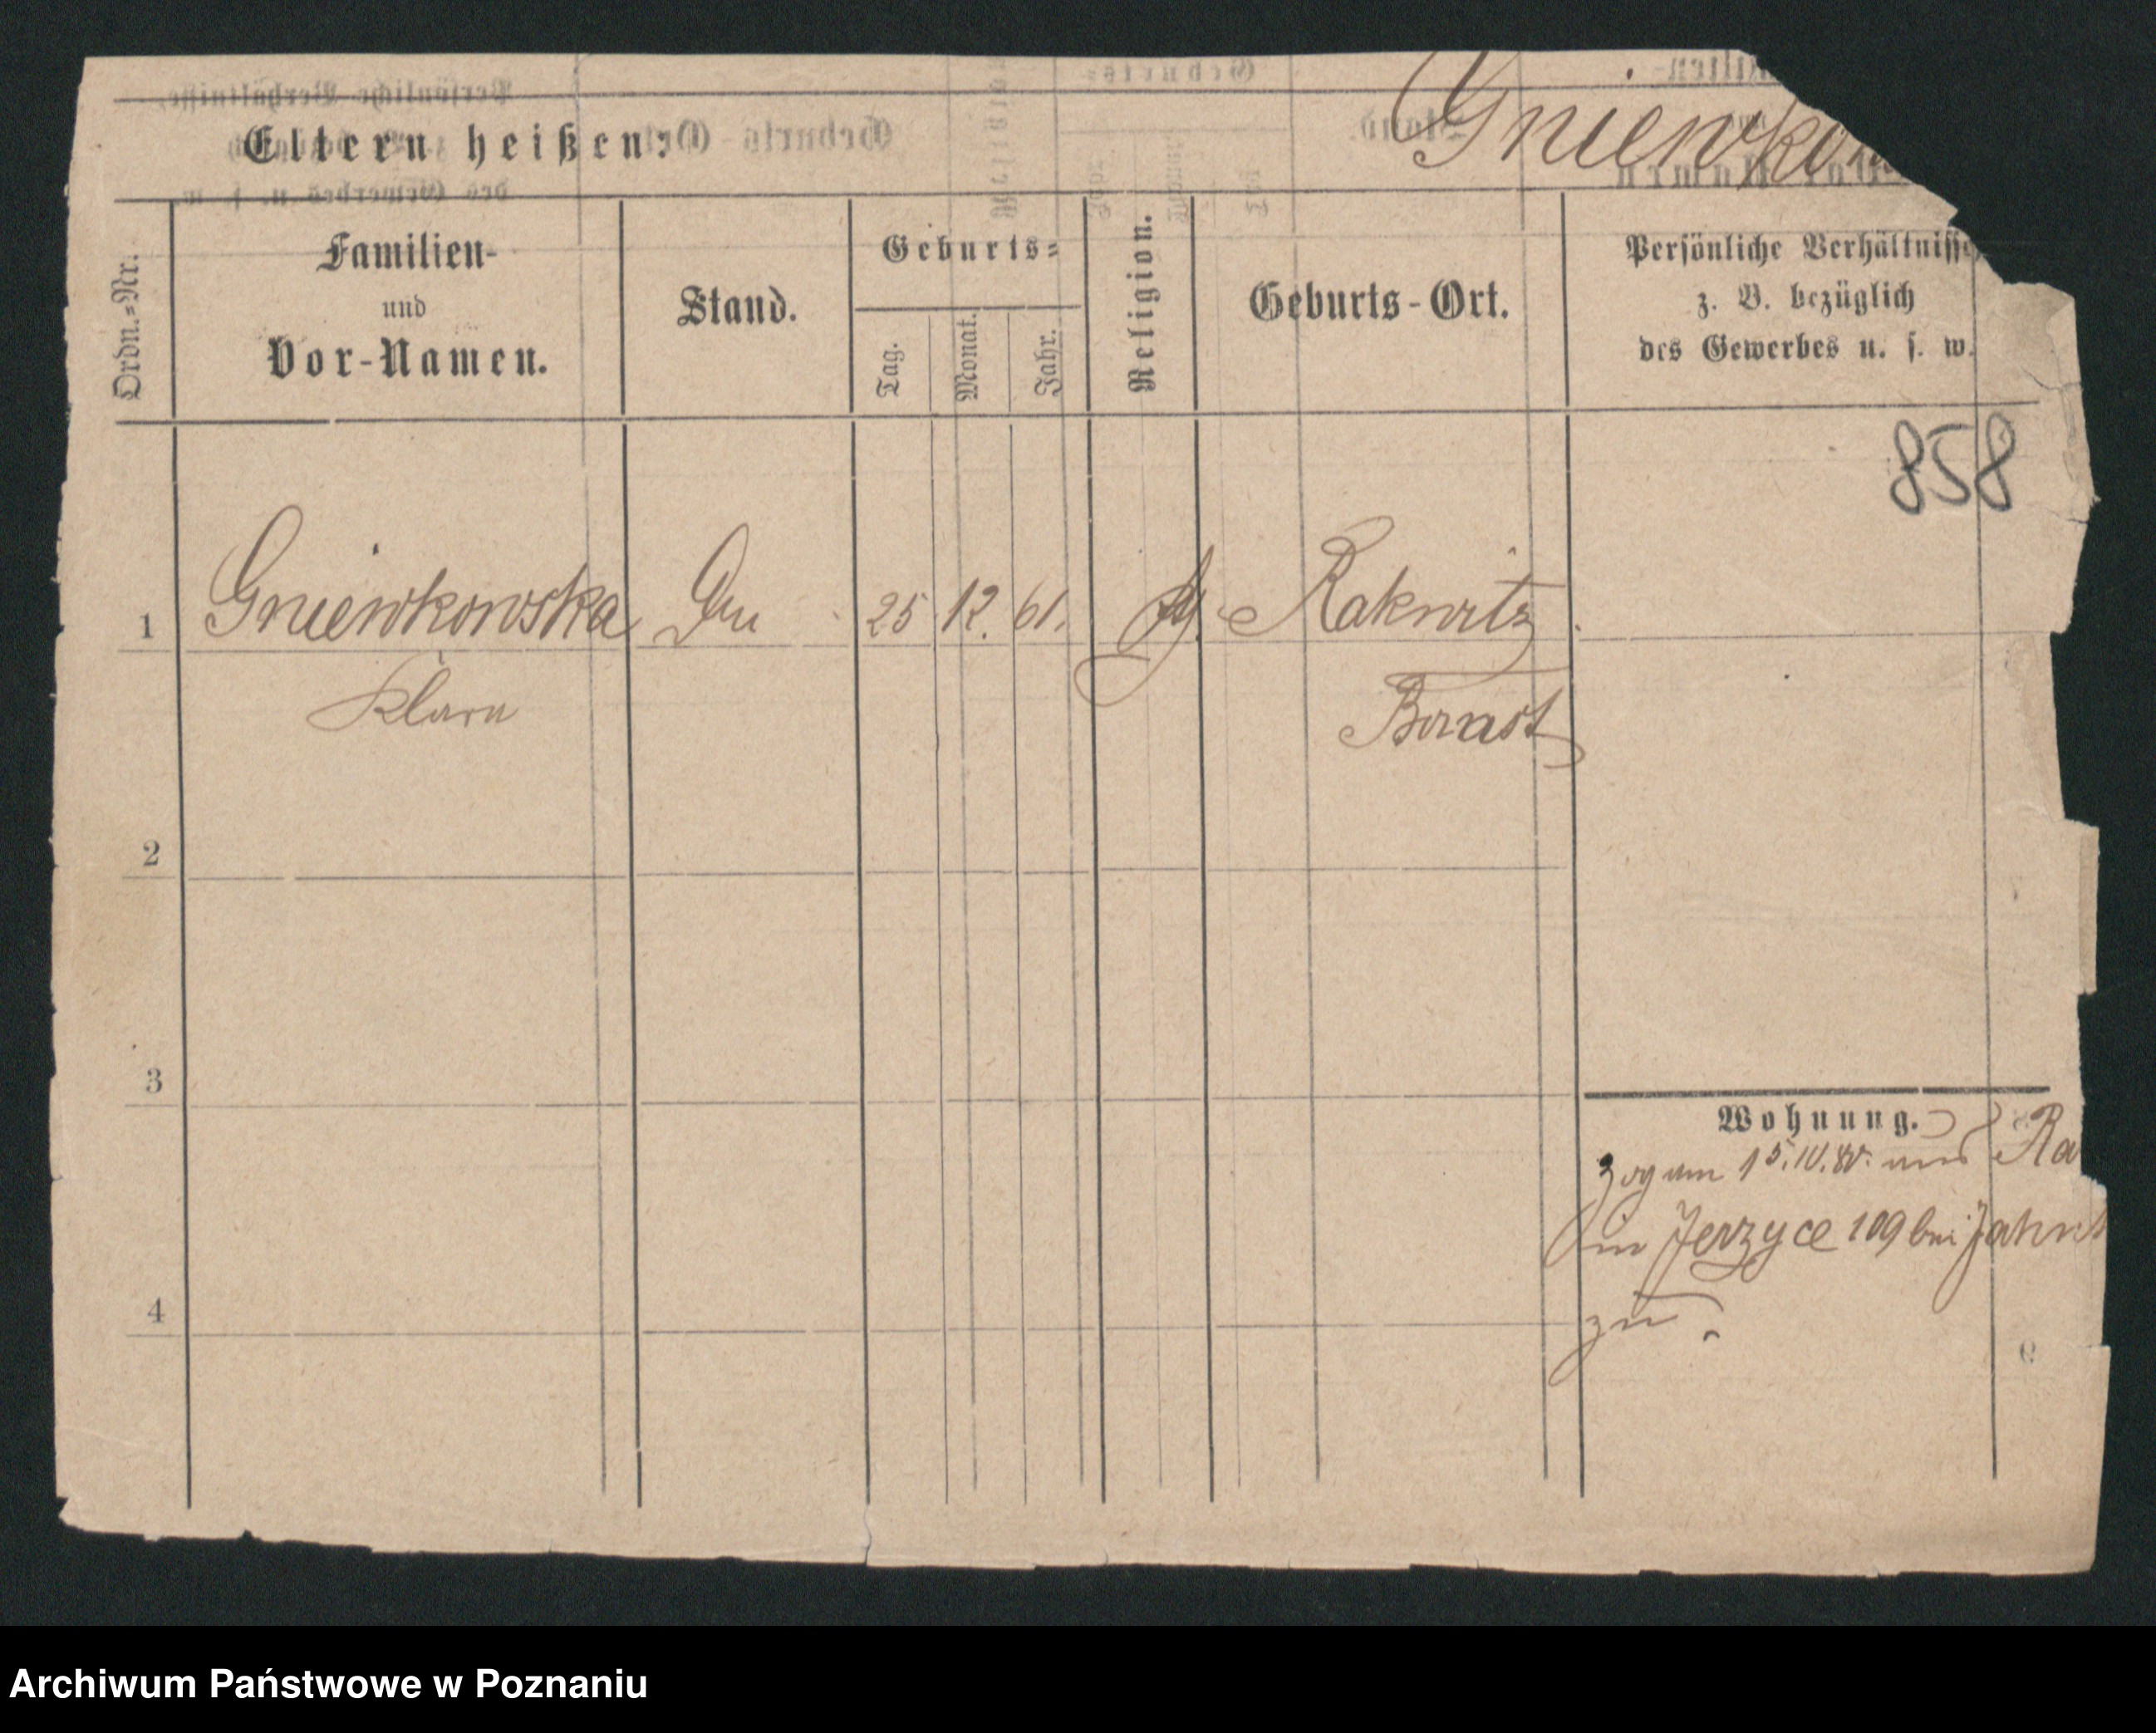 Eltern heißen:
Gniewko
Ordn.-Nr.
Familien-
und
Vor-Namen.
Stand.
Geburts-
Tag.
Monat.
Jahr.
Religion.
Geburts-Ort.
Persönliche Verhältnisse
z. B. bezüglich
des Gewerbes u. s. w.
858
1 Gniewkowska 25 12. 61. Rakwitz
Klara Bomst
2
3
4
Wohnung.
Zog am 15. aus Ra
in Jerzyce 109 bei
zu.
Archiwum Państwowe w Poznaniu